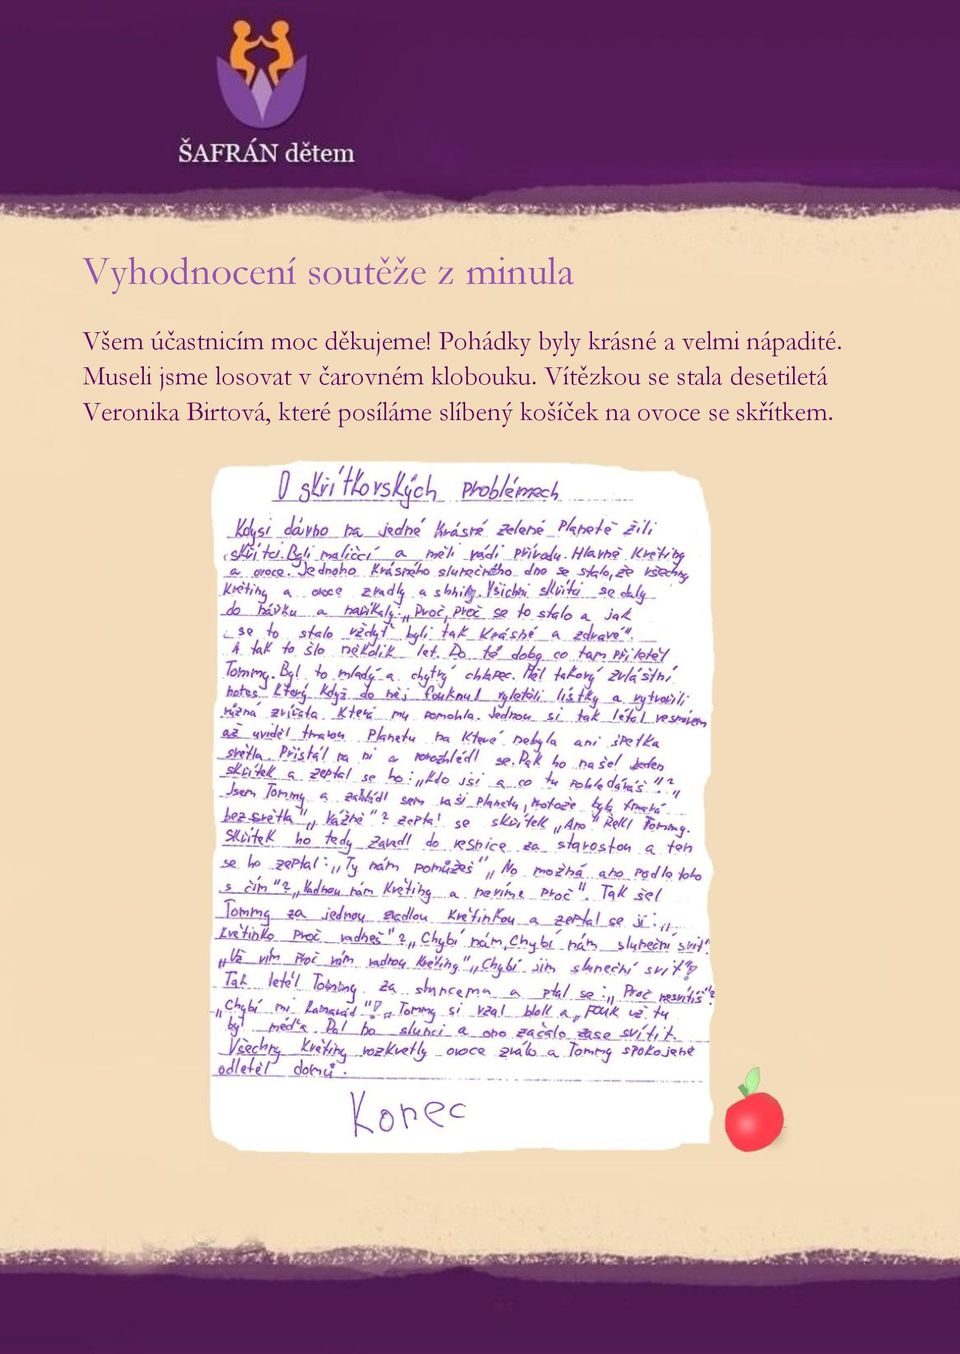 ŠAFRÁN dětem
Vyhodnocení soutěže z minula
Všem účastnicím moc děkujeme! Pohádky byly krásné a velmi nápadité.
Museli jsme losovat v čarovném klobouku. Vítězkou se stala desetiletá
Veronika Birtová, které posíláme slíbený košíček na ovoce se skřítkem.
O skřítkovských problémech
Kdysi dávno na jedné krásné zelené planetě žili
skřítci. Byli maličcí a měli rádi přírodu. Hlavně květiny
a ovoce. Jednoho krásného slunečného dne se stalo, že všechny
květiny a ovoce zvadly a shnily. Všichni skřítci se daly
do nářku a naříkaly: „Proč, proč se to stalo a jak
se to stalo vždyť byli tak krásné a zdravé".
A tak to šlo několik let. Do té doby co tam přiletěl
Tommy. Byl to mladý a chytrý chlapec. Měl takový zvláštní
notes který když do něj fouknul vyletěli lístky a vytvořili
různá zvířata která mu pomohla. Jednou si tak létal vesmírem
až uviděl tmavou planetu na které nebyla ani špetka
světla. Přistál na ni a rozhlédl se. Pak ho našel jeden
skřítek a zeptal se ho: „Kdo jsi a co tu pohledáváš"? „
Jsem Tommy a zahlédl sem vaši planetu, protože byla tmavá
bez světla" „Vážně"? zeptal se skřítek „Ano" řekl Tommy.
Skřítek ho tedy zavedl do vesnice za starostou a ten
se ho zeptal: „Ty nám pomůžeš" „No možná ano podle toho
s čím"? „Vadnou nám květiny a nevíme proč". Tak šel
Tommy za jednou zvadlou květinkou a zeptal se jí: „
Květinko proč vadneš"? „Chybí nám, chybí nám sluneční svit".
„Už vím proč vám vadnou květiny" „Chybí jim sluneční svit"!
Tak letěl Tommy za sluncem a ptal se: „Proč nesvítíš"?
„Chybí mi kamarád"! „Tommy si vzal blok a „FOUK už tu
byl méďa. Dal ho slunci a ono začalo zase svítit.
Všechny květiny rozkvetly ovoce zrálo a Tommy spokojeně
odletěl domů.
Konec